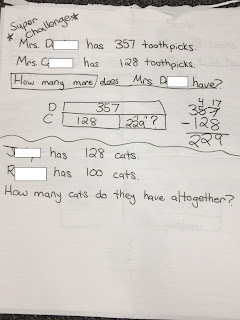 * Super Challenge *
Mrs. D has 357 toothpicks.
Mrs. C has 128 toothpicks.
How many more does Mrs. D have?
D 357
C 128 229 ?
4 17
357
-128
229
J has 128 cats.
R has 100 cats.
How many cats do they have altogether?